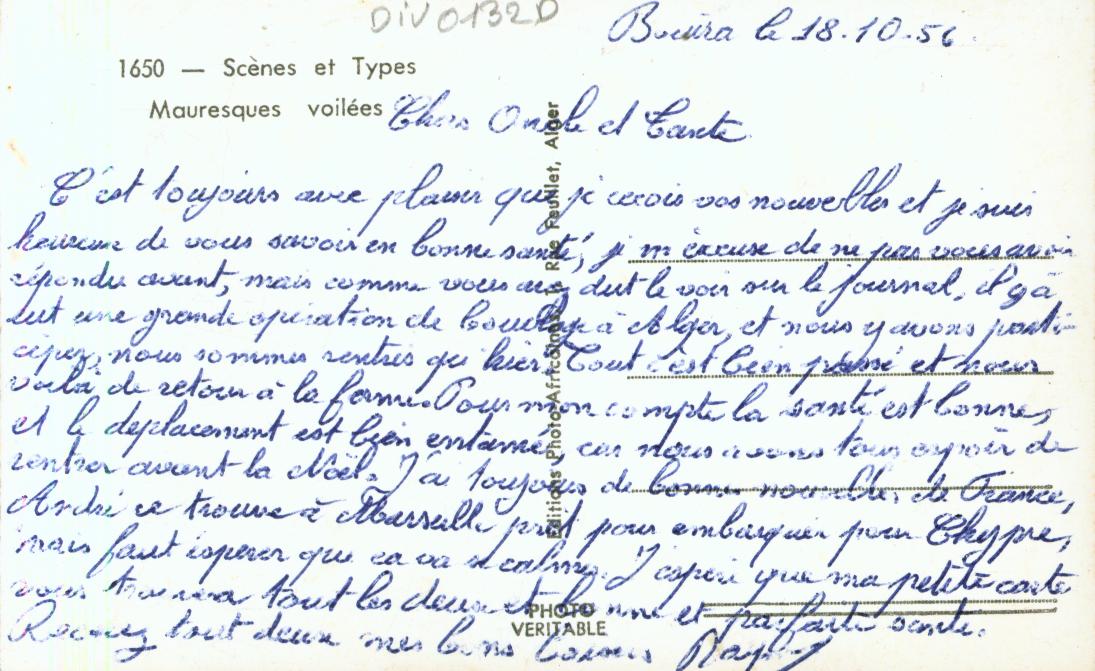 DIV0132D
Bouira le 18-10-56.
1650 — Scènes et Types
Mauresques voilées
Chers Oncle et Tante
C'est toujours avec plaisir que je recois vos nouvelles et je suis
heureux de vous savoir en bonne santé, je m'excuse de ne pas vous avoir
répondu avant, mais comme vous avez dut le voir sur le journal, il y à
eut une grande opération de à Alger, et nous y avons parti-
cipez, nous sommes rentrés qu'hier. Tout c'est bien passé et nous
voilà de retour à la ferme. Pour mon compte la santé est bonne,
et le deplacement est bien entamé, car nous avons tous espoir de
rentrer avant la Noël. J'ai toujours de bonnes nouvelles de France,
André ce trouve à Marseille prêt pour embarquer pour Chypre,
mais faut esperer que ca va se calmer. J'espère que ma petite carte
vous trouvera tout les deux et bonne et parfaite sante.
Recevez tout deux mes bons baisers
Editions Photo-Africaines, Rue Feuillet, Alger
PHOTO
VERITABLE